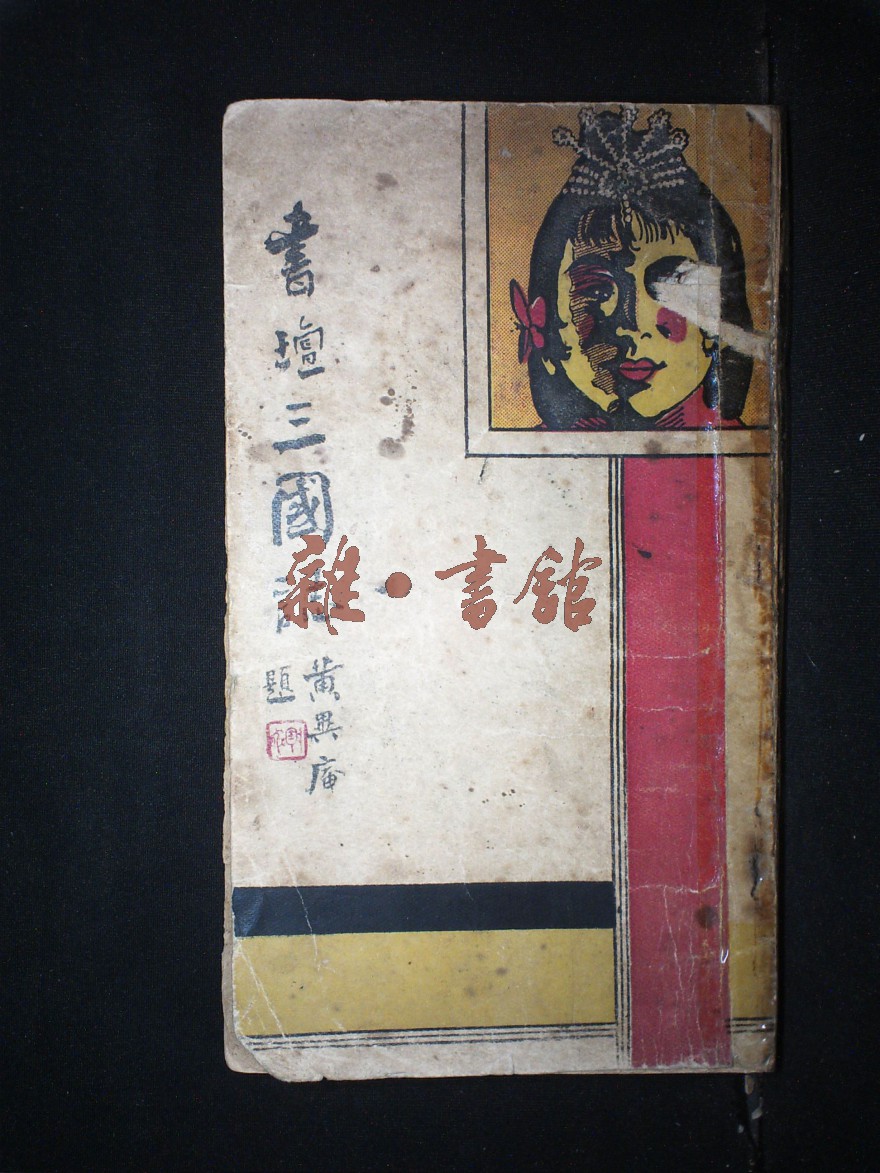 書壇三國
黄異庵
題
雜·書館